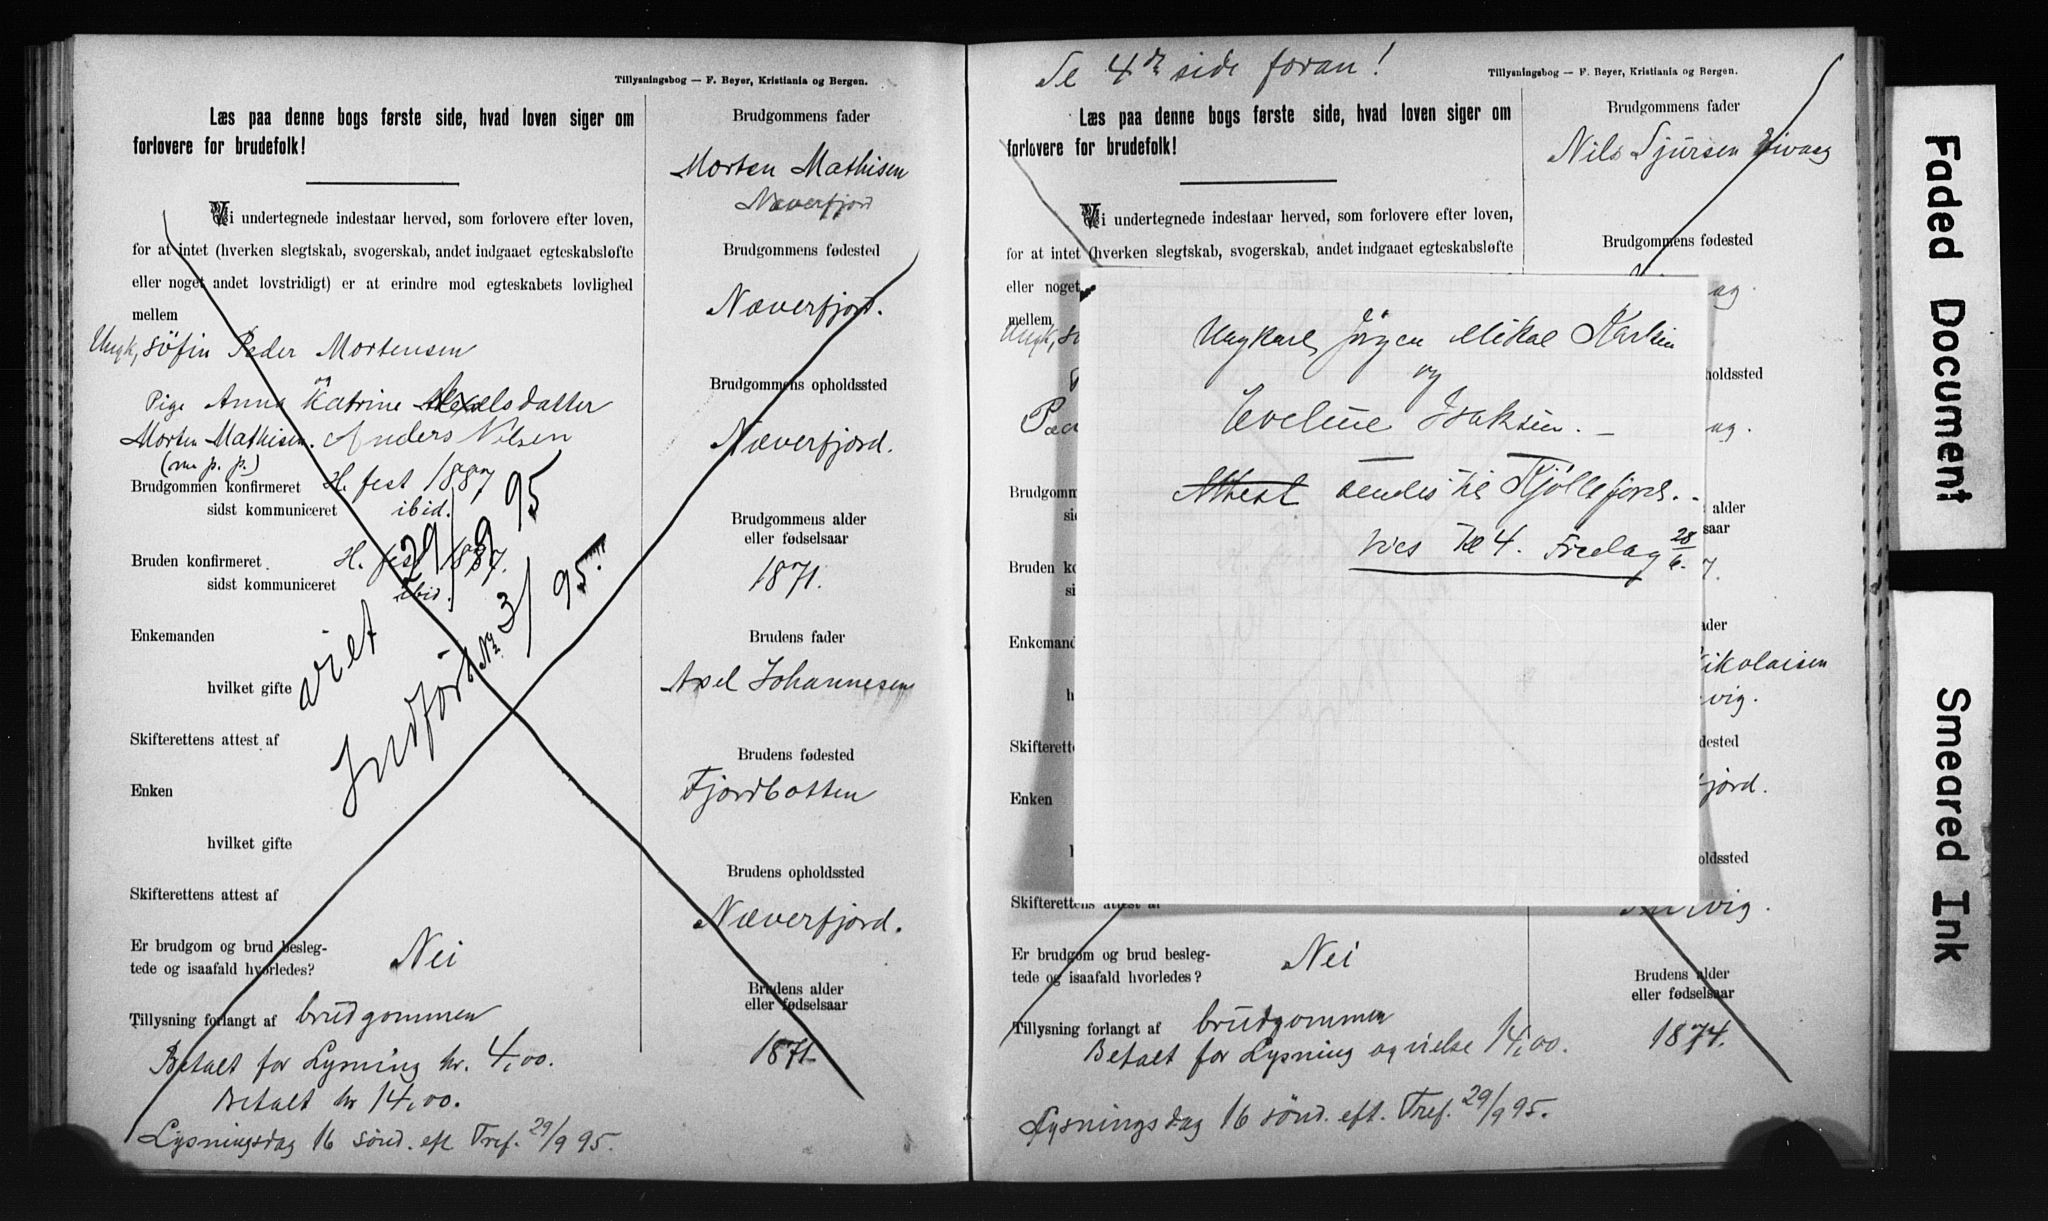 Tillysningsbog — F. Beyer, Kristiania og Bergen.
Læs paa denne bogs første side, hvad loven siger om
forlovere for brudefolk!
Vi undertegnede indestaar herved, som forlovere efter loven,
for at intet (hverken slegtskab, svogerskab, andet indgaaet egteskabsløfte
eller noget andet lovstridigt) er at erindre mod egteskabets lovlighed
mellem
Ungk, Söfin Peder Mortensen
og
Pige Anna Katrine Axelsdatter
Morten Mathisen. Anders Nilsen
(m. p. p.)
Brudgommen konfirmeret H. fest 1887
sidst kommuniceret ibid.
Bruden konfirmeret H. fest 1887.
sidst kommuniceret ibid.
viet 29/9 95
Indført No 3/95.
Enkemanden
hvilket gifte
Skifterettens attest af
Enken
hvilket gifte
Skifterettens attest af
Er brudgom og brud besleg-
tede og isaafald hvorledes? Nei
Tillysning forlangt af brudgommen
Betalt for Lysning kr. 4,00.
Betalt kr 14,00.
Lysningsdag 16 sönd. eft Tref. 29/9 95.
Brudgommens fader
Morten Mathisen
Næverfjord
Brudgommens fødested
Næverfjord.
Brudgommens opholdssted
Næverfjord.
Brudgommens alder
eller fødselsaar
1871.
Brudens fader
Axel Johannesen
Brudens fødested
Fjordbotten
Brudens opholdssted
Næverfjord.
Brudens alder
eller fødselsaar
1871
Se 4de side foran!
Tillysningsbog — F. Beyer, Kristiania og Bergen.
Læs paa denne bogs første side, hvad loven siger om
forlovere for brudefolk!
Vi undertegnede indestaar herved, som forlovere efter loven,
for at intet (hverken slegtskab, svogerskab, andet indgaaet egteskabsløfte
eller noget
mellem
Ungk,
Brudgomm
Bruden ko
Enkemand
Skifterett
Enken
Skifterettens attest af
Er brudgom og brud besleg-
tede og isaafald hvorledes? Nei
Tillysning forlangt af brudgommen
Betalt for Lysning og vielse 14,00.
Lysningsdag 16 sönd. eft. Tref. 29/9 95.
Brudgommens fader
Nils Sjursen
Brudgommens fødested
ag.
holdssted
ag.
alder
saar
7.
ader
ikolaisen
vig.
dested
fjord.
holdssted
vig.
Brudens alder
eller fødselsaar
1874.
Ungkarl Jörgen Mikal
og
Eveline Isaksen. —
Attest sendes til Kjøllefjord. -
vies Kl 4. Fredag 28/6.
Faded Document
Smeared Ink